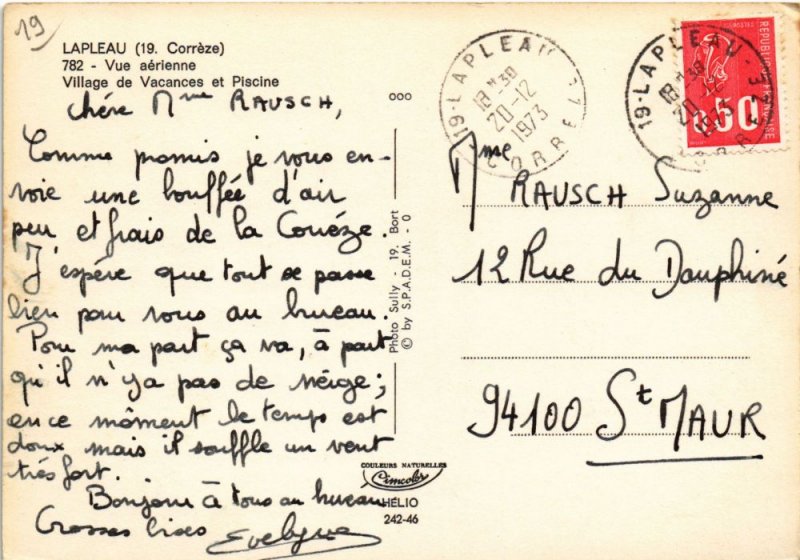 19
LAPLEAU (19. Corrèze)
782 - Vue aérienne
Village de Vacances et Piscine
chère Mme RAUSCH,
Comme promis je vous en-
voie une bouffée d'air
pur et frais de la Corrèze.
J'espère que tout se passe
bien pour vous au bureau.
Pour ma part ça va, à part
qu'il n'ya pas de neige;
en ce moment le temps est
doux mais il souffle un vent
très fort.
Bonjour à tous au bureau
Grosses bises Evelyne
ooo
Photo Sully - 19. Bort
© by S.P.A.D.E.M. - 0
COULEURS NATURELLES
Cimcolor
HÉLIO
242-46
19-LAPLEAU
18H30
20-12
1973
CORREZE
19-LAPLEAU
18H30
20-12
1973
CORREZE
POSTES
REPUBLIQUE FRANÇAISE
0.50
Mme RAUSCH Suzanne
12 Rue du Dauphiné
94100 St MAUR